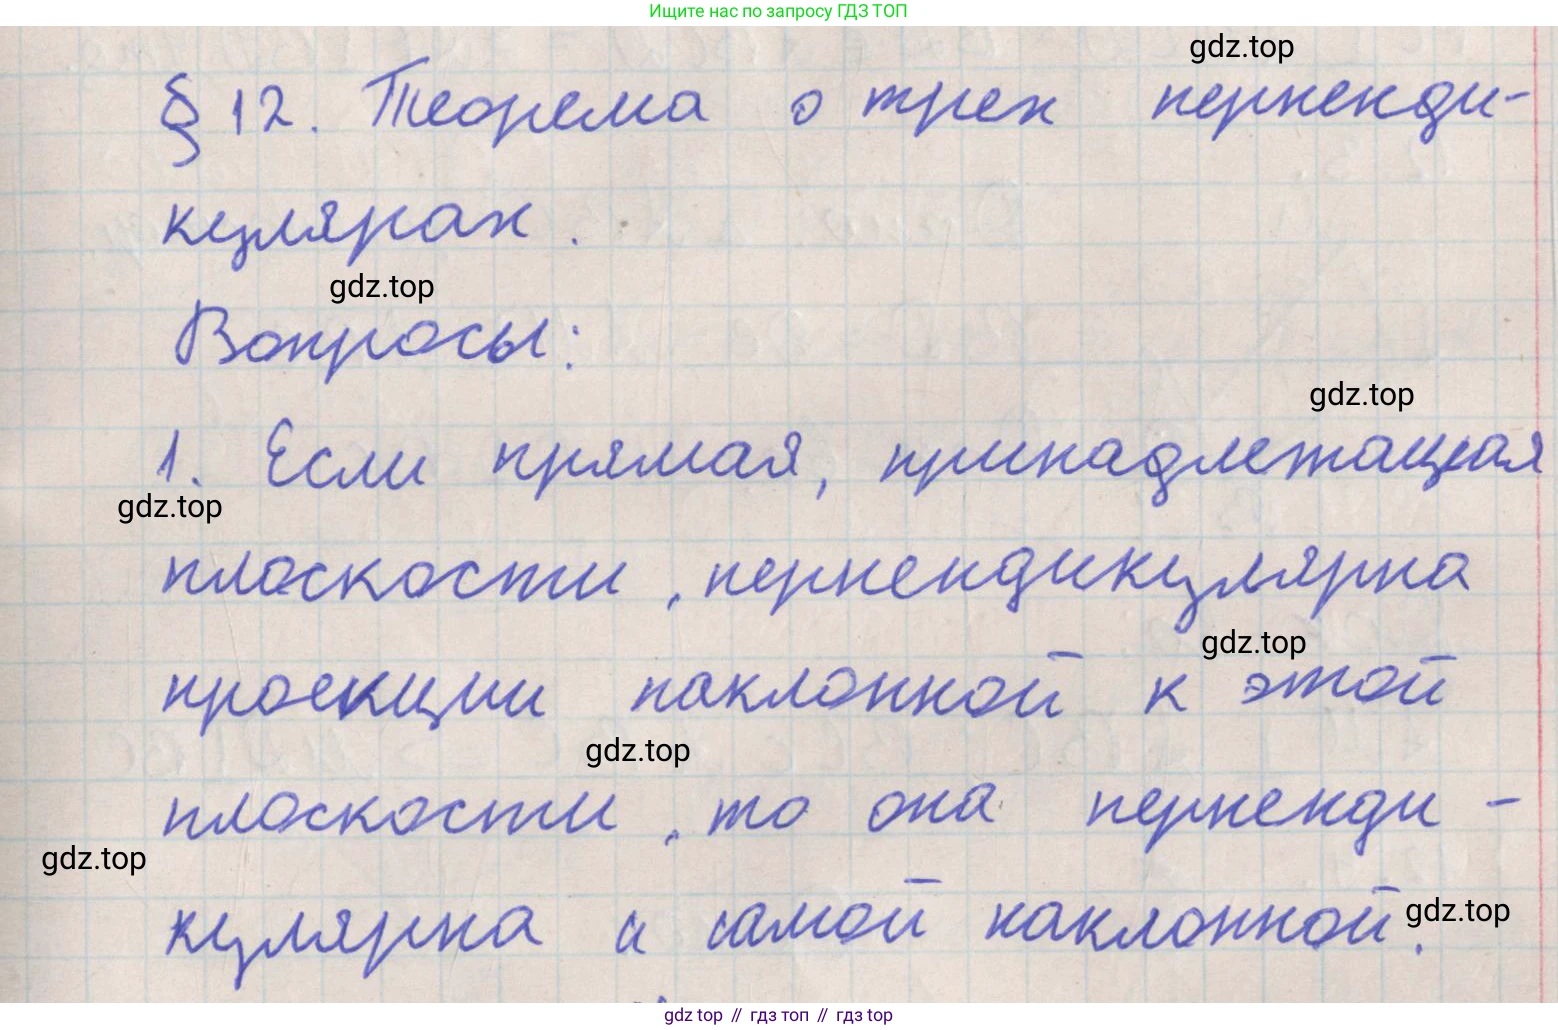 Ищите нас по запросу ГДЗ ТОП
gdz.top
§ 12. Теорема о трех перпенди-
кулярах.
gdz.top
Вопросы:
gdz.top
1. Если прямая, принадлежащая
gdz.top
плоскости, перпендикулярна
gdz.top
проекции наклонной к этой
gdz.top
плоскости, то она перпенди-
gdz.top
кулярна и самой наклонной.
gdz.top
gdz top // гдз топ // гдз top